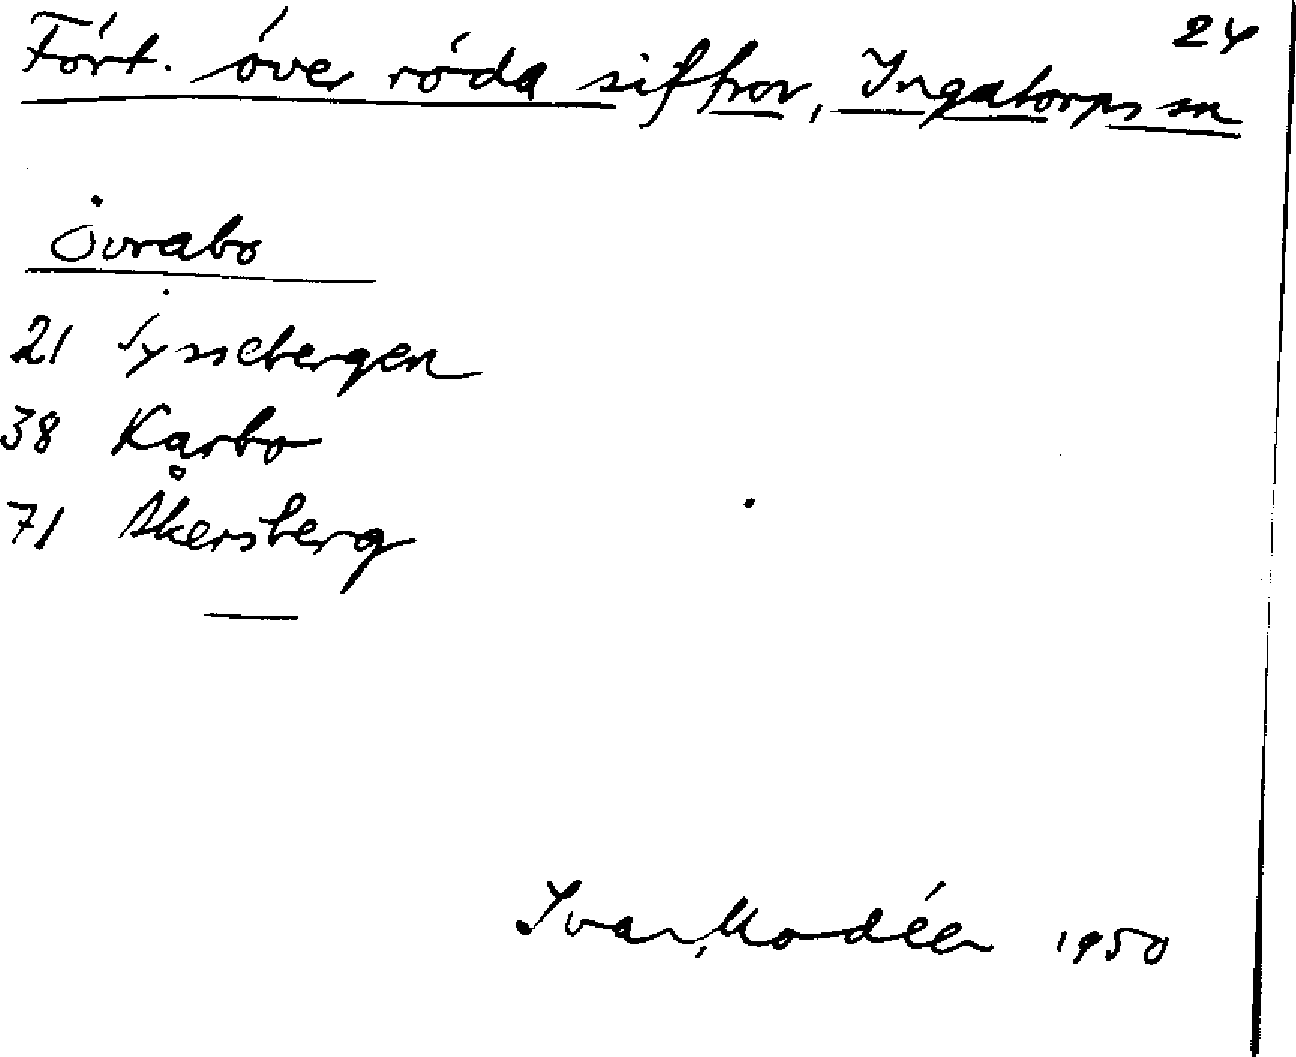 24
Fört. över röda siffror, Ingatorps sn
Övrabo
21 Tyssebergen
38 Karbo
71 Åkersberg
Ivar Modéer 1950